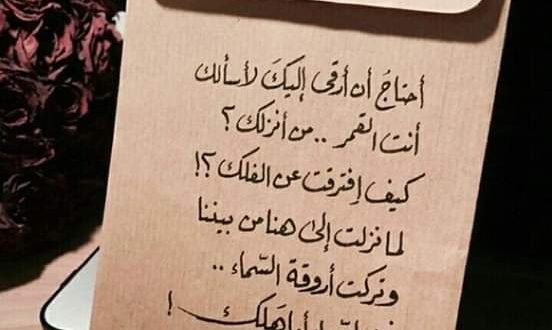 أحتاجُ أن أرقى إليكَ لأسألك
أنت القمر .. من أنزلك ؟
كيف إفترقت عن الفلك ؟!
لما نزلت إلى هنا من بيننا
وتركت أروقة السّماء ..
!